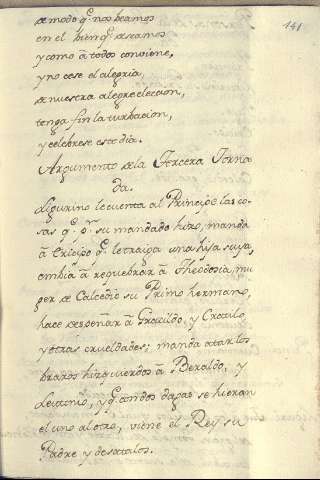 141
de modo q̃ nos veamos
en el bien q̃ deseamos
y como à todos conviene,
y no cese el alegria,
de nuestra alegre eleccion,
tenga fin la turbacion,
y celebrese este dia.
Argumento de la Tercera Jorna
da.
Ligurino le cuenta al Principe las co-
sas q̃ pr̃ su mandado hizo, manda
à q̃ le traiga una hija suya,
embia à requebrar à Theodosia, mu
ger de Calcedio su Primo hermano,
hace despeñar à Gracildo, y Cratilo,
y otras crueldades; manda atar los
brazos hizquierdos à Beraldo, y
y q̃ con dos dagas se hieran
el uno al otro, viene el Rey su
Padre y desatalos.